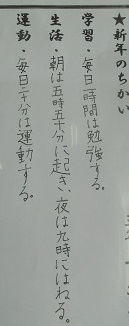 ★新年のちかい
学習・毎日一時間は勉強する。
生活・朝は五時五十分に起き、夜は九時にはねる。
運動・毎日二十分は運動する。